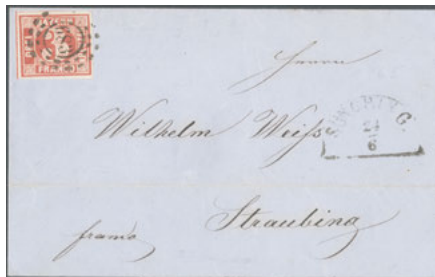 Herrn
Wilhelm Weiß
24
6
Straubing
franco